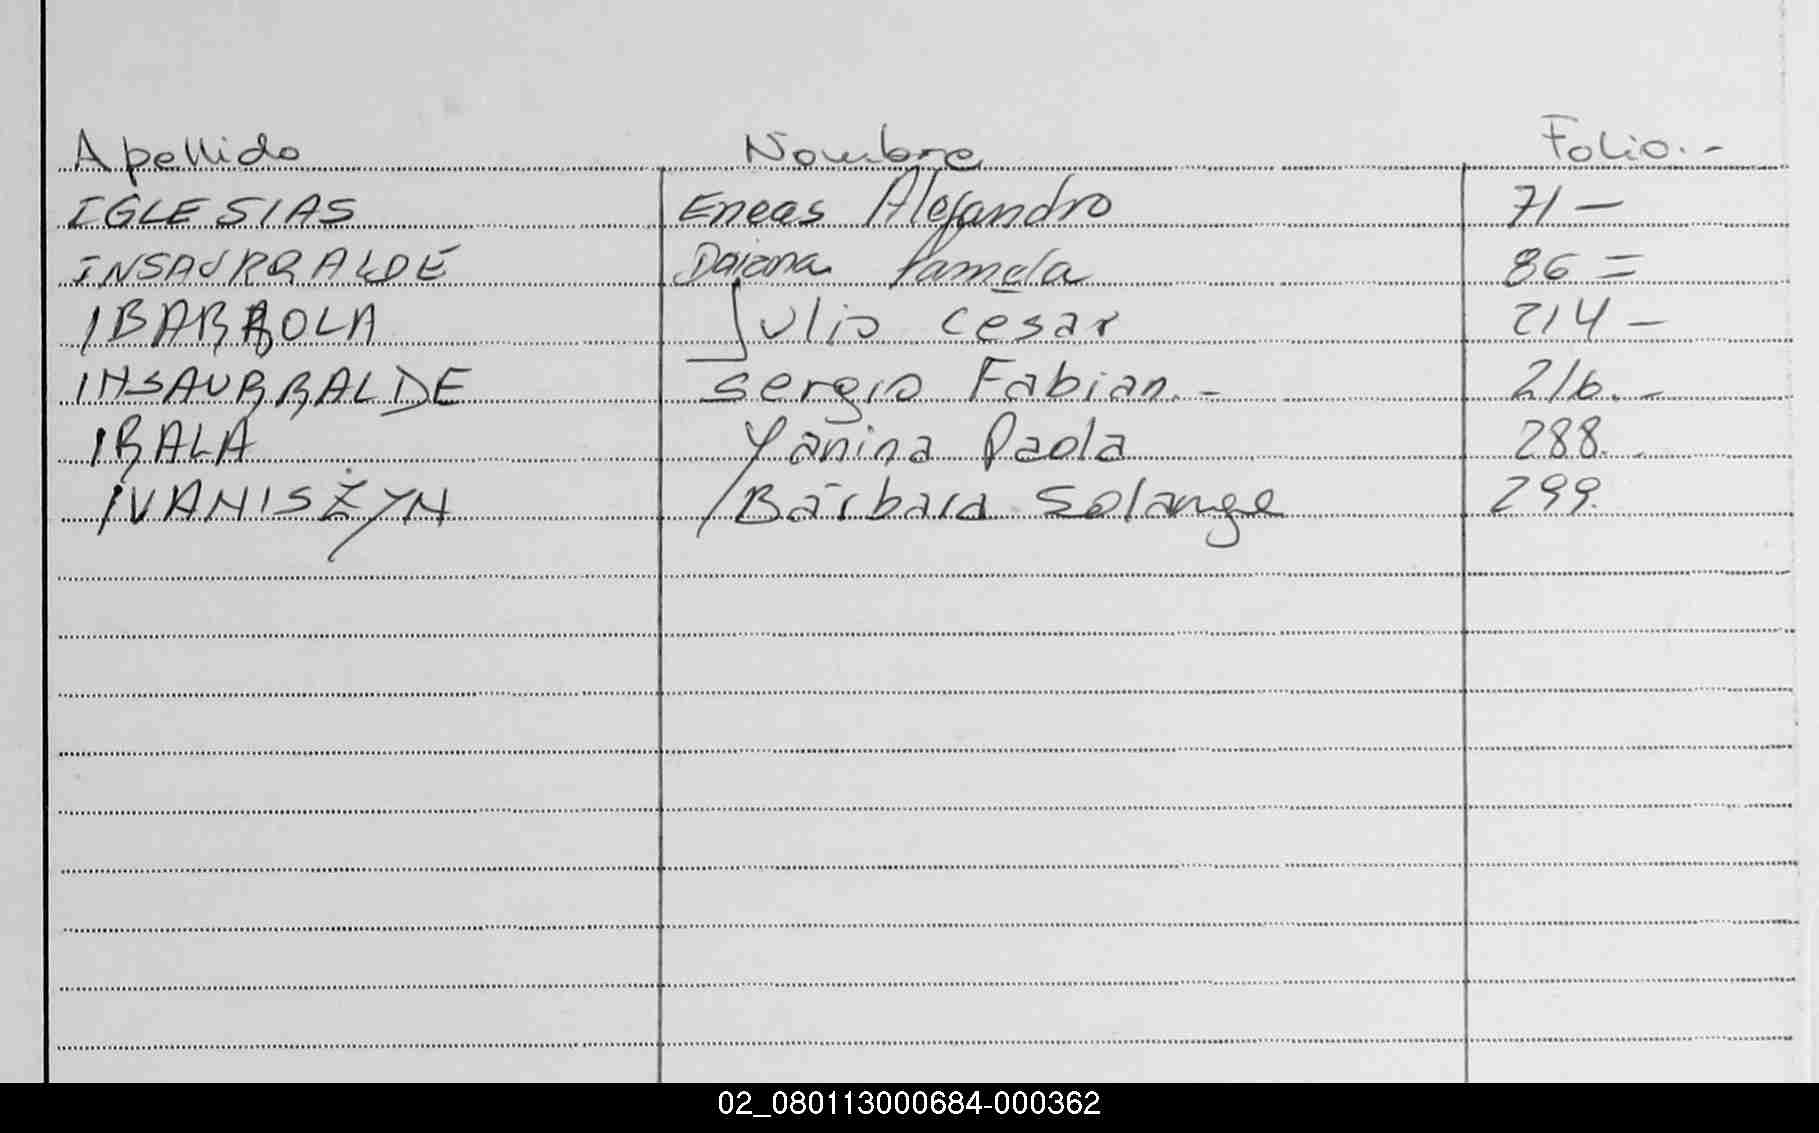 Apellido Nombre Folio.-
IGLESIAS Eneas Alejandro 71 -
INSAURRALDE Daiana Pamela 86 =
IBARROLA Julio César 214 -
INSAURRALDE Sergio Fabian.- 216.-
IRALA Yanina Paola 288..
IVANISZYN Bárbara Solange 299.
02_080113000684-000362